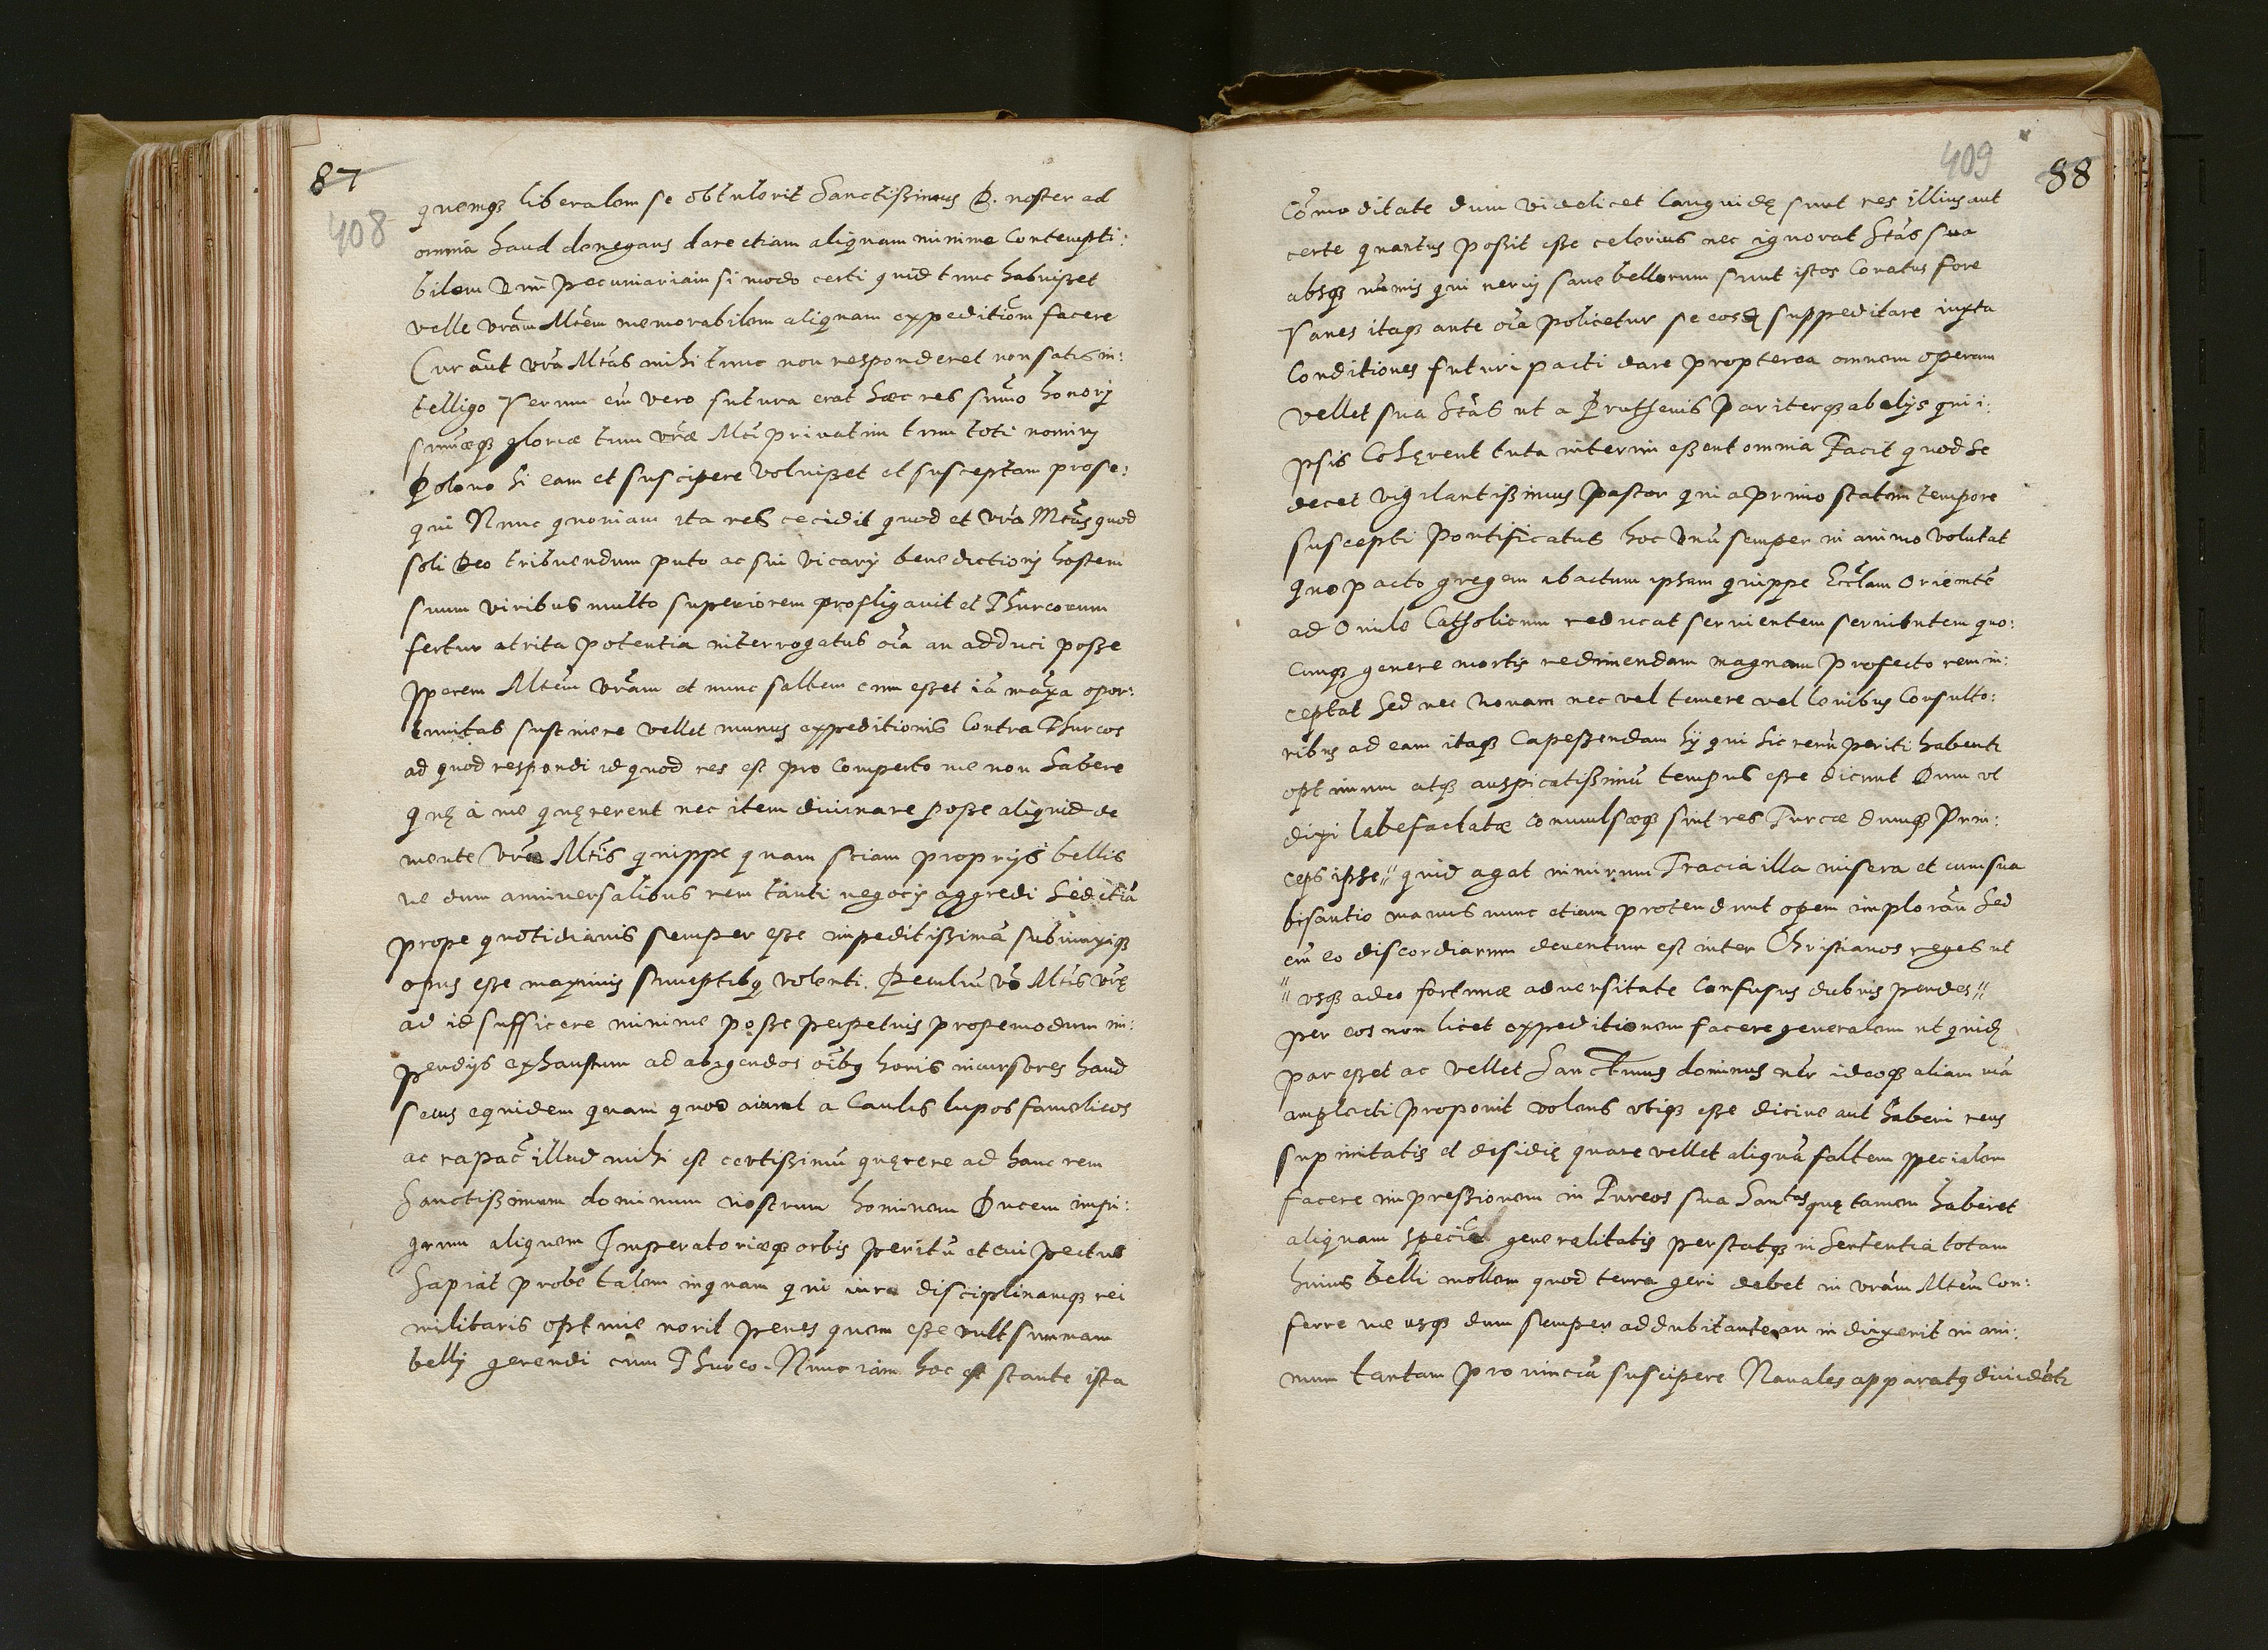 87
408
quemq; liberalem se obtulerit Sanctißimus D. noster ad
omnia haud denegans dare etiam aliquam minime Contempti:
bilem vim pecuniariam si modo certi quid tunc habuißet
velle vrãm Mtem memorabilem aliquam expeditiõm facere
Cur aũt vra Mtas mihi tunc non responderet non satis in:
telligo Verum eñ vero futura erat hæc res sum̃o honorj
sum̃æq; gloriæ tum vræ Mti priuatim tum toti nominj
Polono si eam et suscipere voluißet et susceptam prose:
qui Nunc quoniam ita res cecidit quod et vra Mtas quod
soli Deo tribuendum puto ac sui vicarij benedictionj hostem
suum viribus multo superiorem profligauit et Thurcorum
fertur atrita potentia interrogatus oĩa an adduci poße
sperem Mtem vrãm et nunc saltem cum eßet iã maxĩa opor:
tunitas sustinere vellet munus expeditionis Contra Thurcos
ad quod respondi id quod res est pro Comperto me non habere
quę à me quęrerent nec item diuinare poße aliquid de
mente vræ Mtis quippe quam sciam proprijs bellis
ne dum anniuersalibus rem tanti negocij aggredi sed etiã
prope quotidianis semper eße impeditißimã subiunxiq;
opus eße maximis sumptibq volenti. Peculiũ võ Mtis vrę
ad id sufficere minime poße perpetuis propemodum im:
pendijs exhaustum ad abigendos oĩbq horis incursores haud
secus equidem quam quod aiunt a Caulis lupos famelicos
ac rapac̃ illud mihi est certißimũ quęrere ad hanc rem
Sanctißimum dominum nostrum hominem Ducem insi:
gnem aliquem Imperatoriæq; orbis peritũ et cui pectus
sapiat probe talem inquam qui iura disciplinamq; rei
militaris optime norit penes quem eße vult summam
bellj gerendi cum Thurco. Nunc iam hoc est stante ista
409
88
Com̃oditate dum videlicet languidę sunt res illius aut
certe quantus poßit eße celerius nec ignorat Stas sua
absq; num̃is qui neruj sane bellorum sunt istos Conatus fore
Vanes itaq; ante oĩa policetur se eosq suppeditare iuxta
Conditiones futuri pacti dare propterea omnem operam
vellet sua Stas ut a Pruthenis pariterq; ab alijs qui i:
psis Cohęrent tuta interim eßent omnia Facit quod se
decet vigilantißimus pastor qui a primo statim tempore
suscepti Pontificatus hoc vnũ semper in animo volutat
quo pacto gregem abactum ipsam quippe Eccl̃am Orientẽ
ad Ouile Catholicum reducat seruientem seruitutem quo:
Cumq; genere mortis redimendam magnam profecto rem in:
ceptat sed nec nouam nec vel temere vel leuibus Consulto:
ribus ad eam itaq; Capeßendam hij qui sic rerũ periti habent̃
optimum atq; auspicatißimũ tempus eße dicunt Dum vt
dixi labefactatæ conuulsæq; sint res Turcæ dumq; Prin:
ceps ipse " quid agat nimirum Tracia illa misera et cum sua
bisantio manus nunc etiam protendunt opem implorãn sed
cũ eo discordiarum deuentum est inter Christianos reges ut
" vsq; adeo fortunæ aduersitate Confusus dubius pendes "
per eos non licet expeditionem facere generalem ut quid
par eßet ac vellet Sanctmus dominus ñr ideoq; aliam viã
amplecti proponit volens vtiq; eße dicive aut haberi reus
supinitatis et desidię quare vellet aliquã saltem specialem
facere impreßionem in Turcos sua Santas quę tamen haberet
aliquam specie generalitatis perstatq; in sententia totam
huius belli mollem quod terra geri debet in vrãm Mtem Con:
ferre me usq; dum semper addubitante an induxerit in ani:
mum tantam prouinciã suscipere Nauales apparatq diuidẽt̃